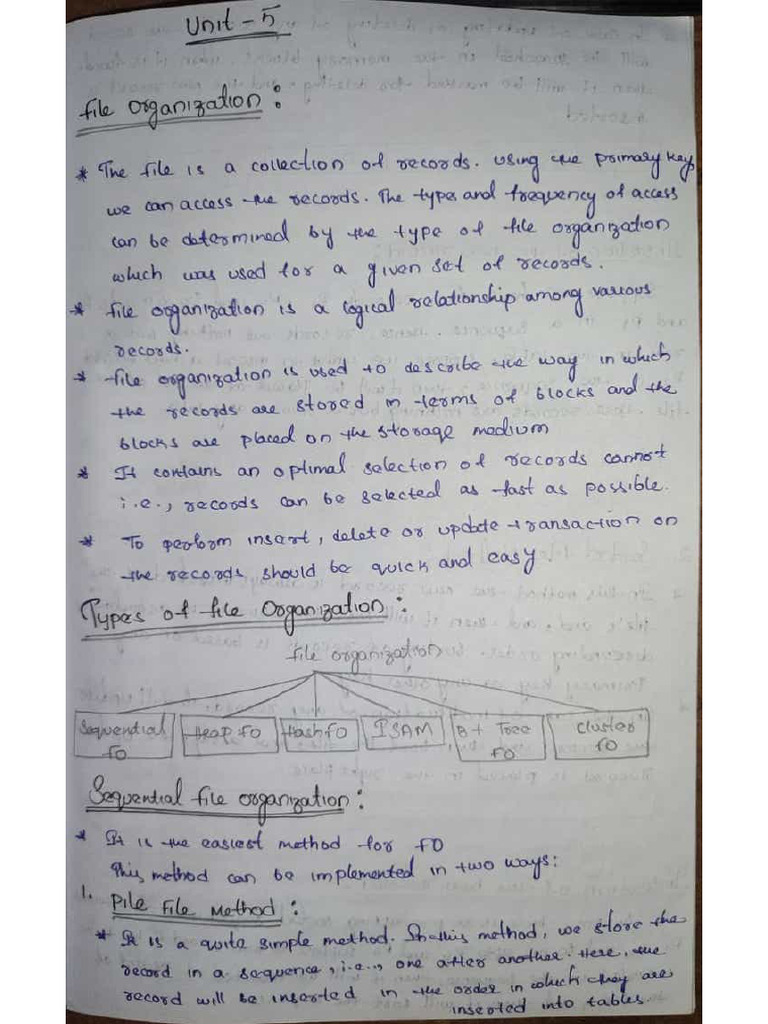 Unit - 5
File Organization :
* The file is a collection of records. Using the primary key
we can access the records. The types and frequency of access
can be determined by the type of file organization
which was used for a given set of records.
* File organization is a logical relationship among various
records.
* File organization is used to describe the way in which
the records are stored in terms of blocks and the
blocks are placed on the storage medium
* It contains an optimal selection of records cannot
i.e., records can be selected as fast as possible.
* To perform insert, delete or update transaction on
the records should be quick and easy.
Types of file Organization :
file organization
Sequential FO Heap FO Hash FO ISAM B+ Tree FO Cluster FO
Sequential file organization :
* It is the easiest method for FO
This method can be implemented in two ways:
1. Pile File Method :
* It is a quite simple method. In this method, we store the
record in a sequence, i.e., one after another. Here, the
record will be inserted in the order in which they are
inserted into tables.